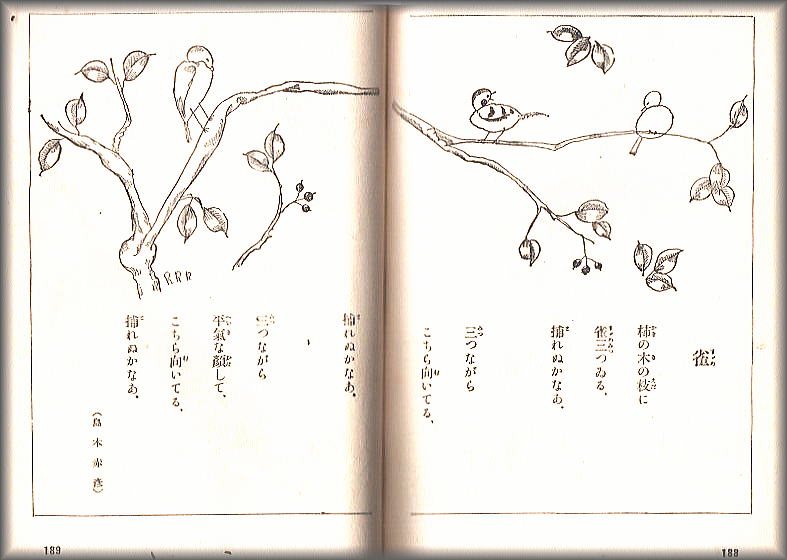 雀
柿の木の枝に
雀三つゐる、
捕れぬかなあ。
三つながら
こちら向いてる、
捕れぬかなあ。
三つながら
平氣な顏して、
こちら向いてる、
捕れぬかなあ。
(島木赤彦)
RRR
188
189